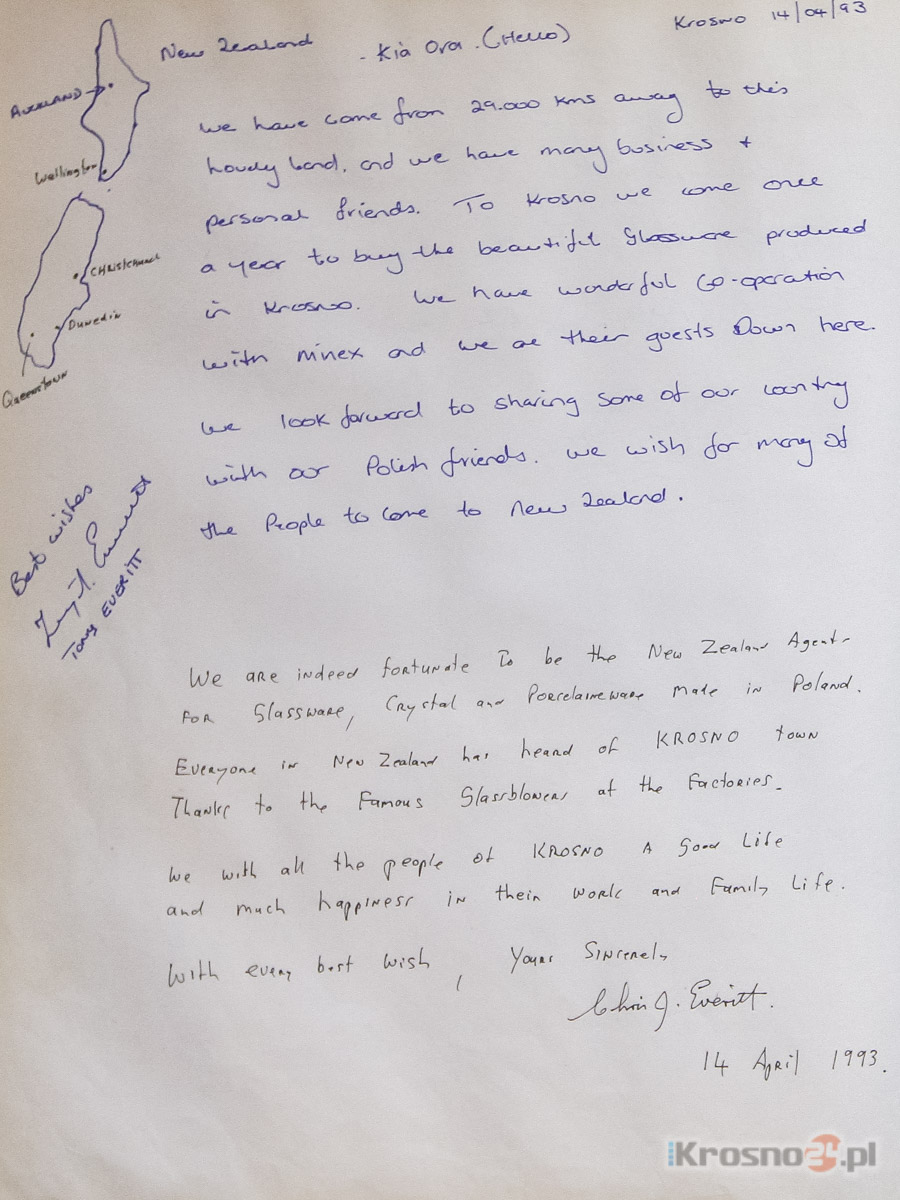 New Zealand - Kia Ora. (Hello) Krosno 14/04/93
AUCKLAND
Wellington
CHRistchurch
Dunedin
Queenstown
We have come from 29.000 kms away to this
lovely land, and we have many business +
personal friends. To Krosno we come once
a year to buy the beautiful Glassware produced
in Krosno. We have wonderful Co-operation
with minex and we are their guests Down here.
We look forward to sharing some of our country
with our Polish friends. We wish for many of
the People to come to New Zealand.
Best wishes
Tony EVERITT
We are indeed fortunate To be the New Zealand Agent
For Glassware, Crystal and Porcelaineware made in Poland.
Everyone in New Zealand has heard of KROSNO town
Thanks to the Famous Glassblowers at the Factories.
We with all the people of KROSNO A Good Life
and much happiness in their work and Family Life.
With every best wish, Yours Sincerely
Chris J. Everitt.
14 April 1993.
iKrosno24.pl